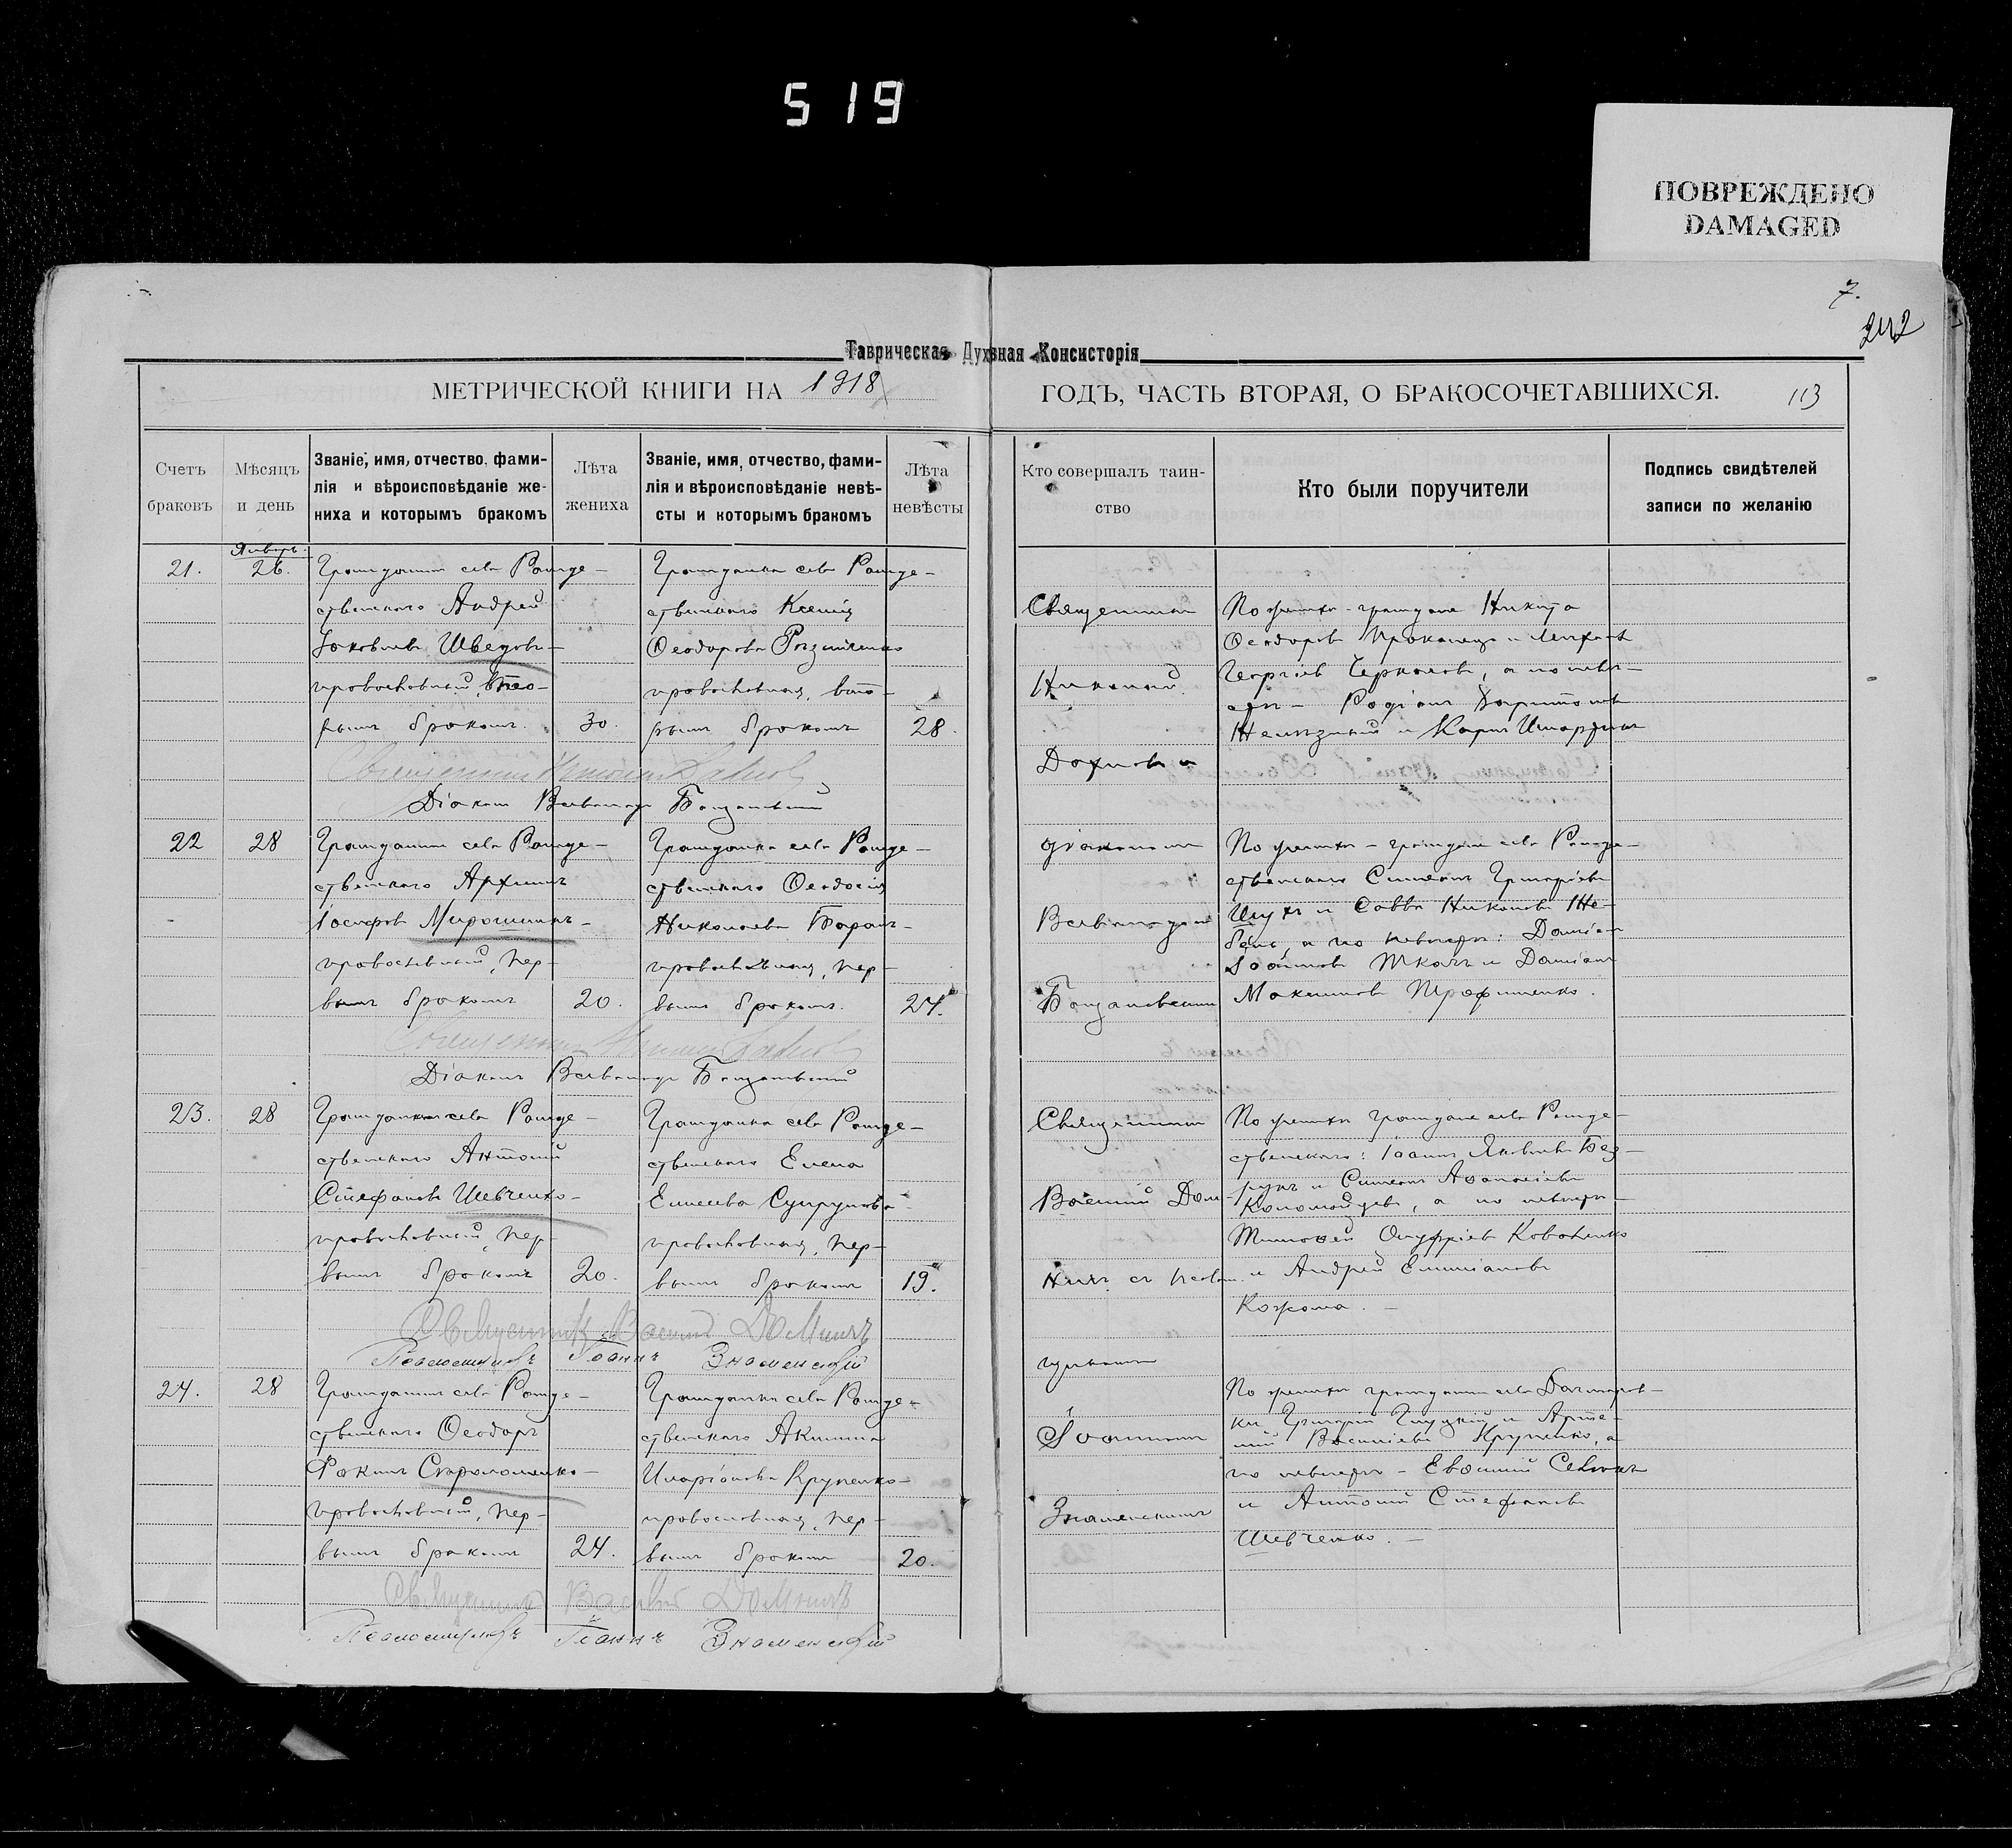 519
ПОВРЕЖДЕНО
DAMAGED
7.
242
Таврическая Духовная Консисторія
МЕТРИЧЕСКОЙ КНИГИ НА 1918 ГОДЪ, ЧАСТЬ ВТОРАЯ, О БРАКОСОЧЕТАВШИХСЯ. 113
Счетъ браковъ
Мѣсяцъ и день
Званіе, имя, отчество, фами-
лія и вѣроисповѣданіе же-
ниха и которымъ бракомъ
Лѣта жениха
Званіе, имя, отчество, фами-
лія и вѣроисповѣданіе невѣ-
сты и которымъ бракомъ
Лѣта невѣсты
Кто совершалъ таин-
ство
Кто были поручители
Подпись свидѣтелей
записи по желанію
Январь
21. 26.
Гражданинъ села Рожде-
ственскаго Андрей
Іаковлевъ Шведовъ-
православный, вто-
рымъ бракомъ. 30.
Гражданка села Рожде-
ственскаго Ксенія
Ѳеодорова
православная, вто-
рымъ бракомъ 28.
Священникъ
Николай
По женихѣ - граждане Никита
Ѳеодоровъ и Михаилъ
Георгіевъ, а по невѣ-
стѣ - Родіонъ
и Карпъ
Діаконъ Всеволодъ
22 28
Гражданинъ села Рожде-
ственскаго Архипъ
Іосифовъ Мирошникъ-
православный, пер-
вымъ бракомъ 20.
Гражданка села Рожде-
ственскаго Ѳеодосія
Николаева Баранъ-
православная, пер-
вымъ бракомъ. 24.
діакономъ
Всеволодомъ
По женихѣ - граждане села Рожде-
ственскаго Симеонъ Григоріевъ
и Савва Никоновъ Не-
а по невѣстѣ: Даміанъ
Іоанновъ Ткачъ и Даміанъ
Максимовъ Трофименко.
Діаконъ Всеволодъ
23. 28
Гражданинъ села Рожде-
ственскаго Антоній
Стефановъ Шевченко-
православный, пер-
вымъ бракомъ 20.
Гражданка села Рожде-
ственскаго Елена
Елисеева Супрунова
православная, пер-
вымъ бракомъ 19.
Священникъ
Василій Дом-
ничъ съ псалом-
По женихѣ граждане села Рожде-
ственскаго: Іоаннъ Яковлевъ Без-
и Симеонъ Аѳанасіевъ
Коломойцевъ, а по невѣстѣ-
Тимоѳей Онуфріевъ Коваленко
и Андрей Емиліановъ
Кожома. -
Священникъ Василій Домничъ
Псаломщикъ Іоаннъ Знаменскій
24. 28
Гражданинъ села Рожде-
ственскаго Ѳеодоръ
православный, пер-
вымъ бракомъ 24.
Гражданка села Рожде-
ственскаго Акилина
Иларіонова Крупенко-
православная, пер-
вымъ бракомъ 20.
щикомъ
Іоанномъ
Знаменскимъ
По женихѣ граждане села
ки Григорій и Арте-
мій Василіевъ Крупенко, а
по невѣстѣ - Евѳимій
и Антоній Стефановъ
Шевченко. -
Священникъ Василій Домничъ
Псаломщикъ Іоаннъ Знаменскій